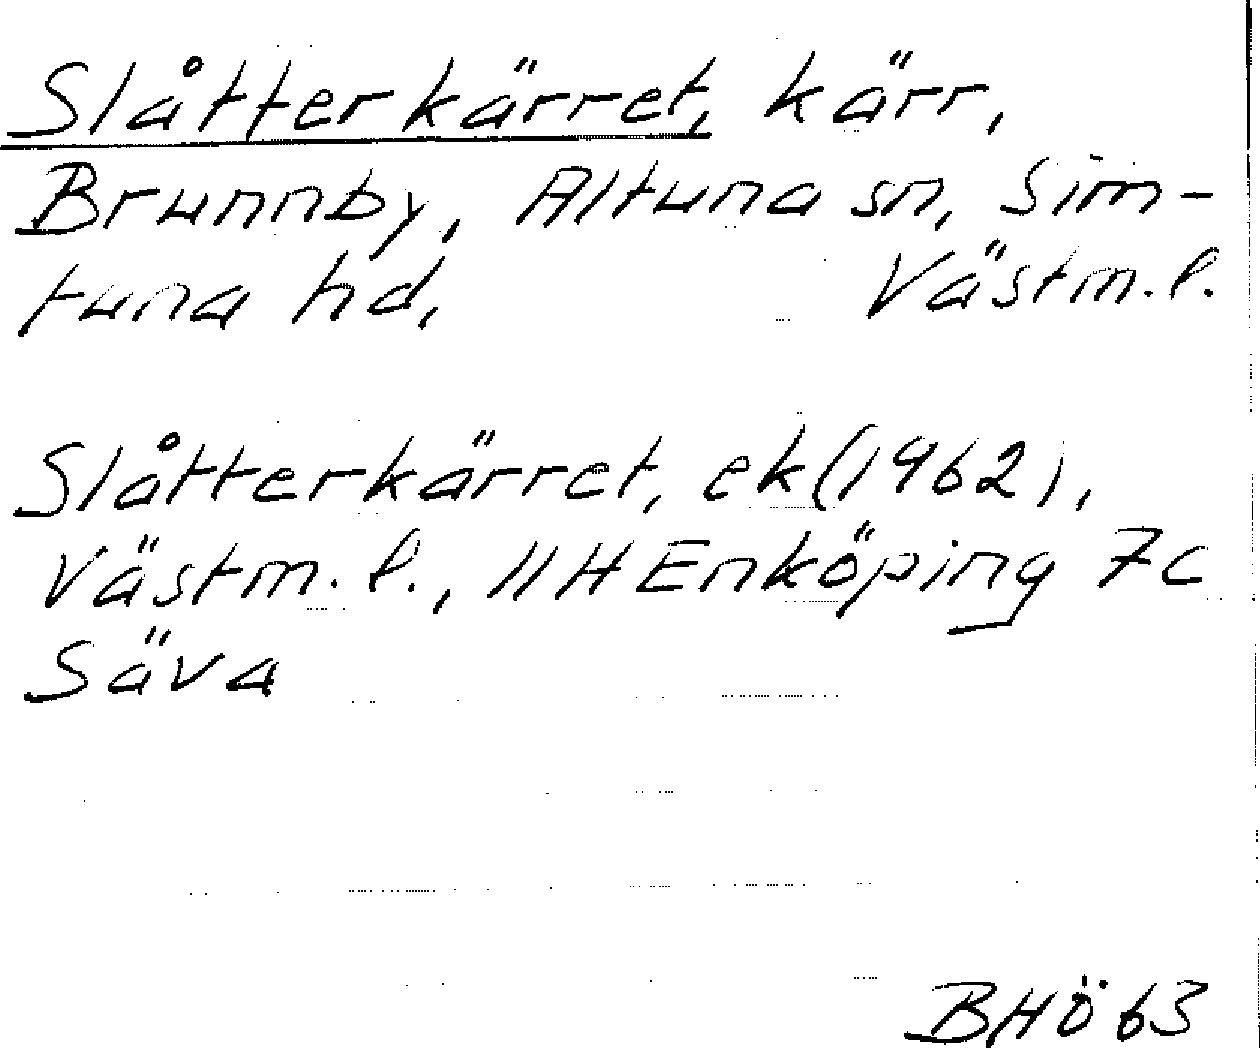 Slåtterkärret, kärr,
Brunnby, Altuna sn, Sim-
tuna hd, Västm. l.
Slåtterkärret, ek (1962),
Västm. l., 11H Enköping 7c
Säva
BHÖ 63